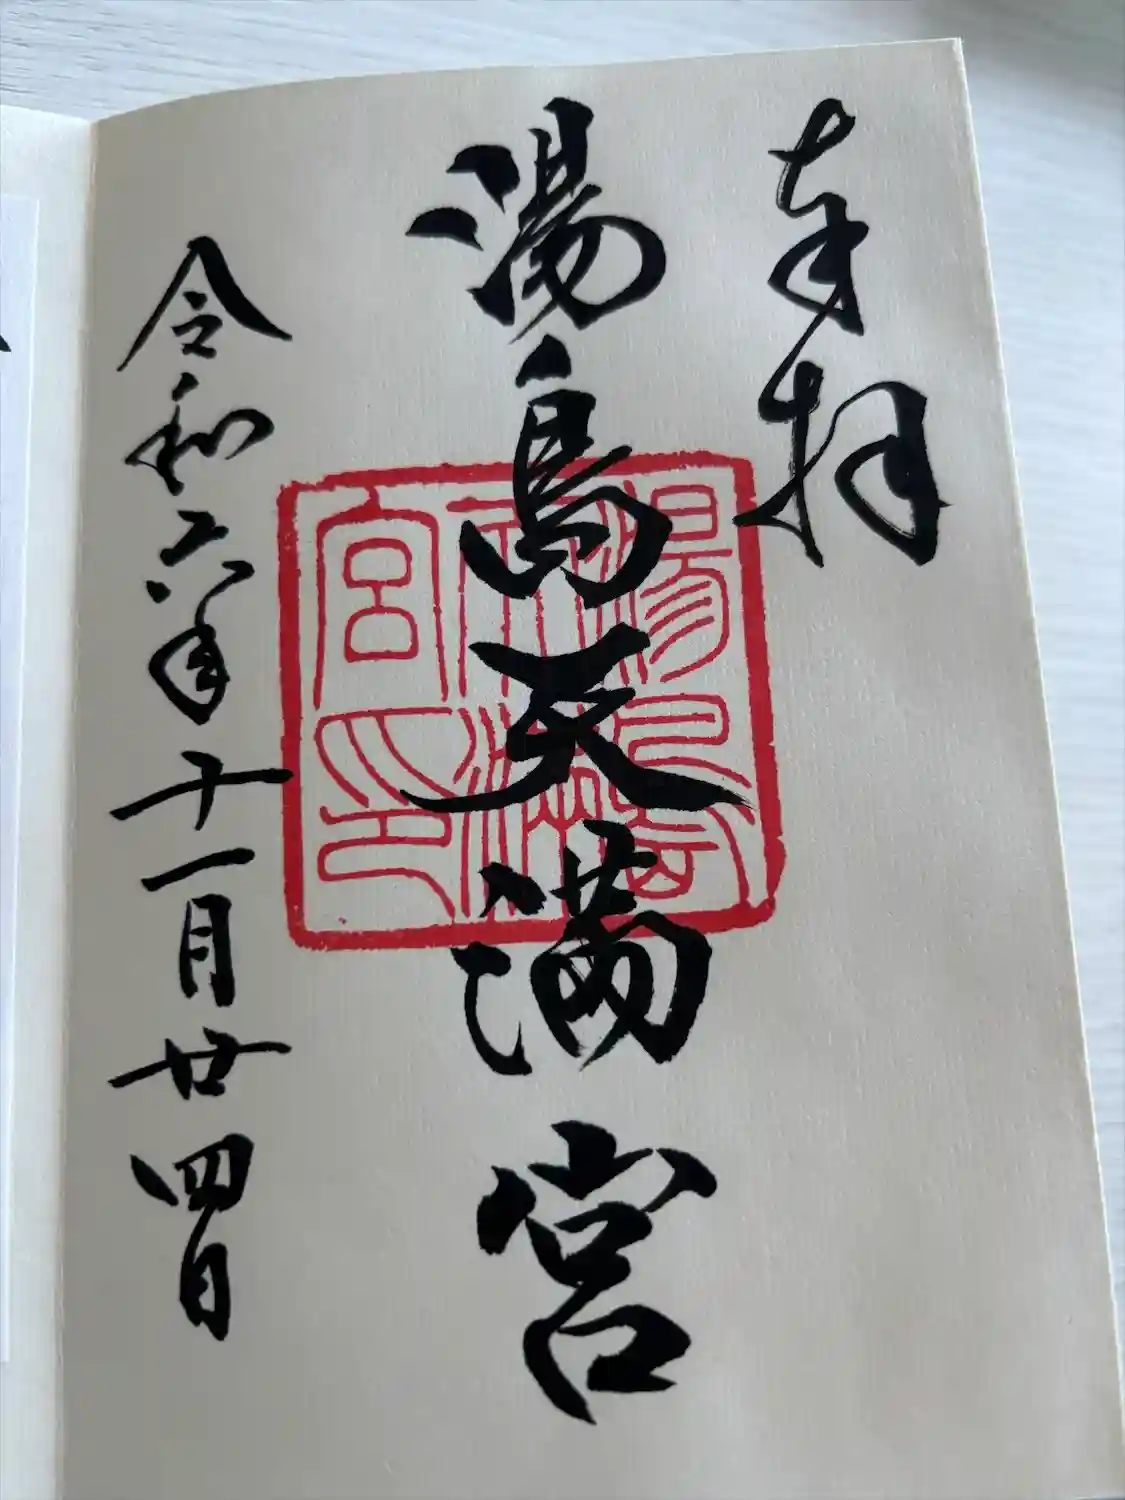 奉拝
湯島天満宮
令和六年十一月廿四日
湯島天満宮印